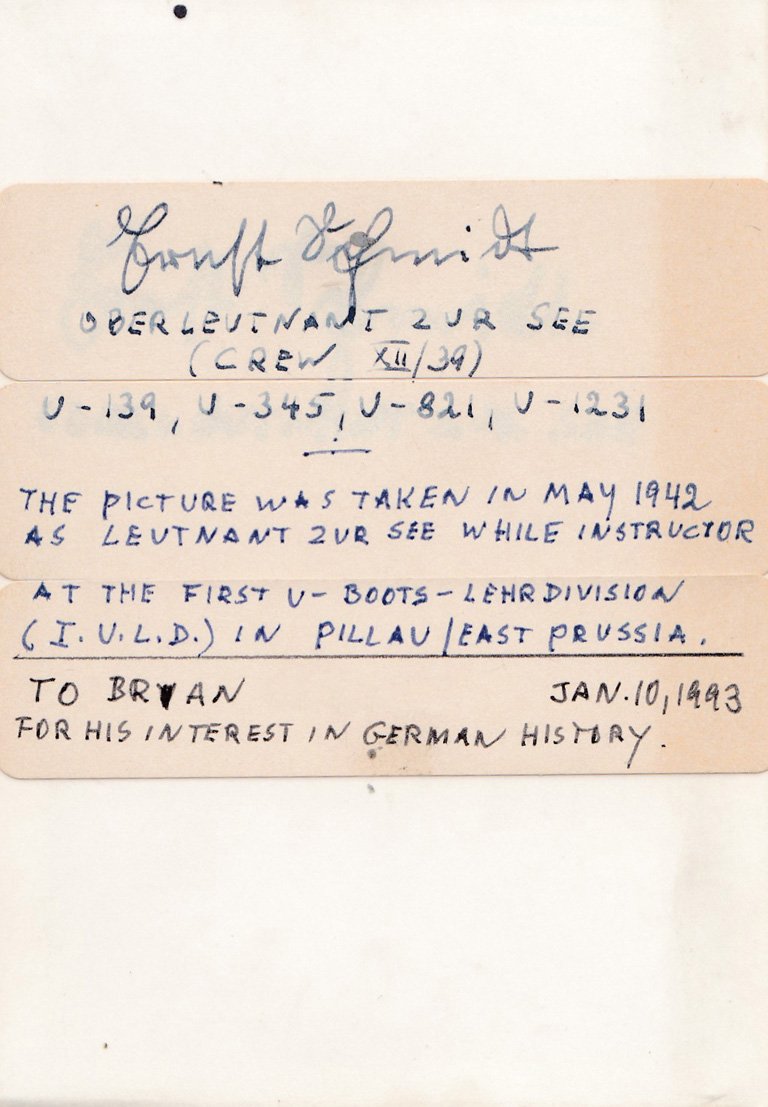 Ernst Schmidt
OBERLEUTNANT ZUR SEE
(CREW XII/39)
U-139, U-345, U-821, U-1231
THE PICTURE WAS TAKEN IN MAY 1942
AS LEUTNANT ZUR SEE WHILE INSTRUCTOR
AT THE FIRST U-BOOTS-LEHRDIVISION
(I.U.L.D.) IN PILLAU/EAST PRUSSIA.
TO BRYAN JAN.10,1993
FOR HIS INTEREST IN GERMAN HISTORY.